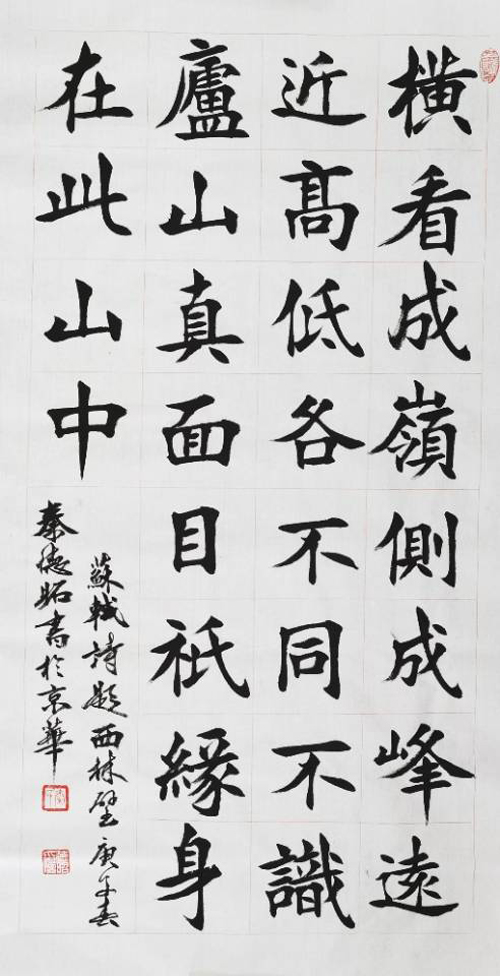 横看成嶺側成峰遠
近髙低各不同不識
廬山真面目祇緣身
在此山中
蘇軾詩題西林壁庚子春
秦德昭書於京華